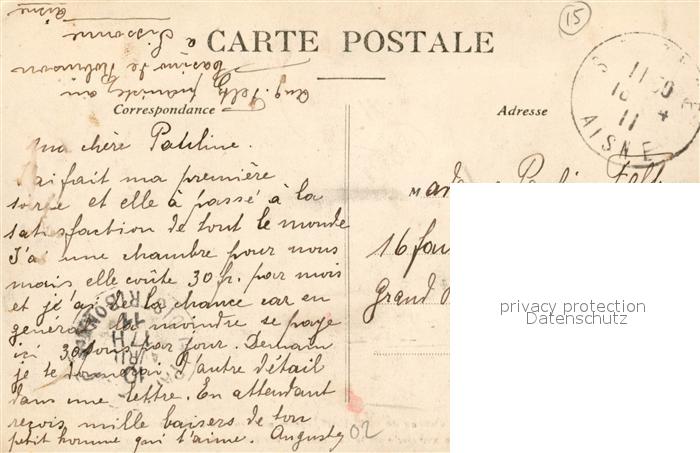 Aisne
à Sissonne
Casino de Robinson
Aug. Felh pianiste au
15
CARTE POSTALE
Correspondance
Adresse
11 50
11
AISNE
ma chère Pauline.
ai fait ma première
soirée et elle à passé à la
satisfaction de tout le monde
J'ai une chambre pour nous
mais elle coûte 30 fr. par mois
et j'ai de la chance car en
général la moindre se paye
ici 30 sous par jour. Demain
je te donnerai d'autre détail
dans une lettre. En attendant
reçois mille baisers de ton
petit homme qui t'aime. Auguste
02
16 fau
Grand
privacy protection
Datenschutz